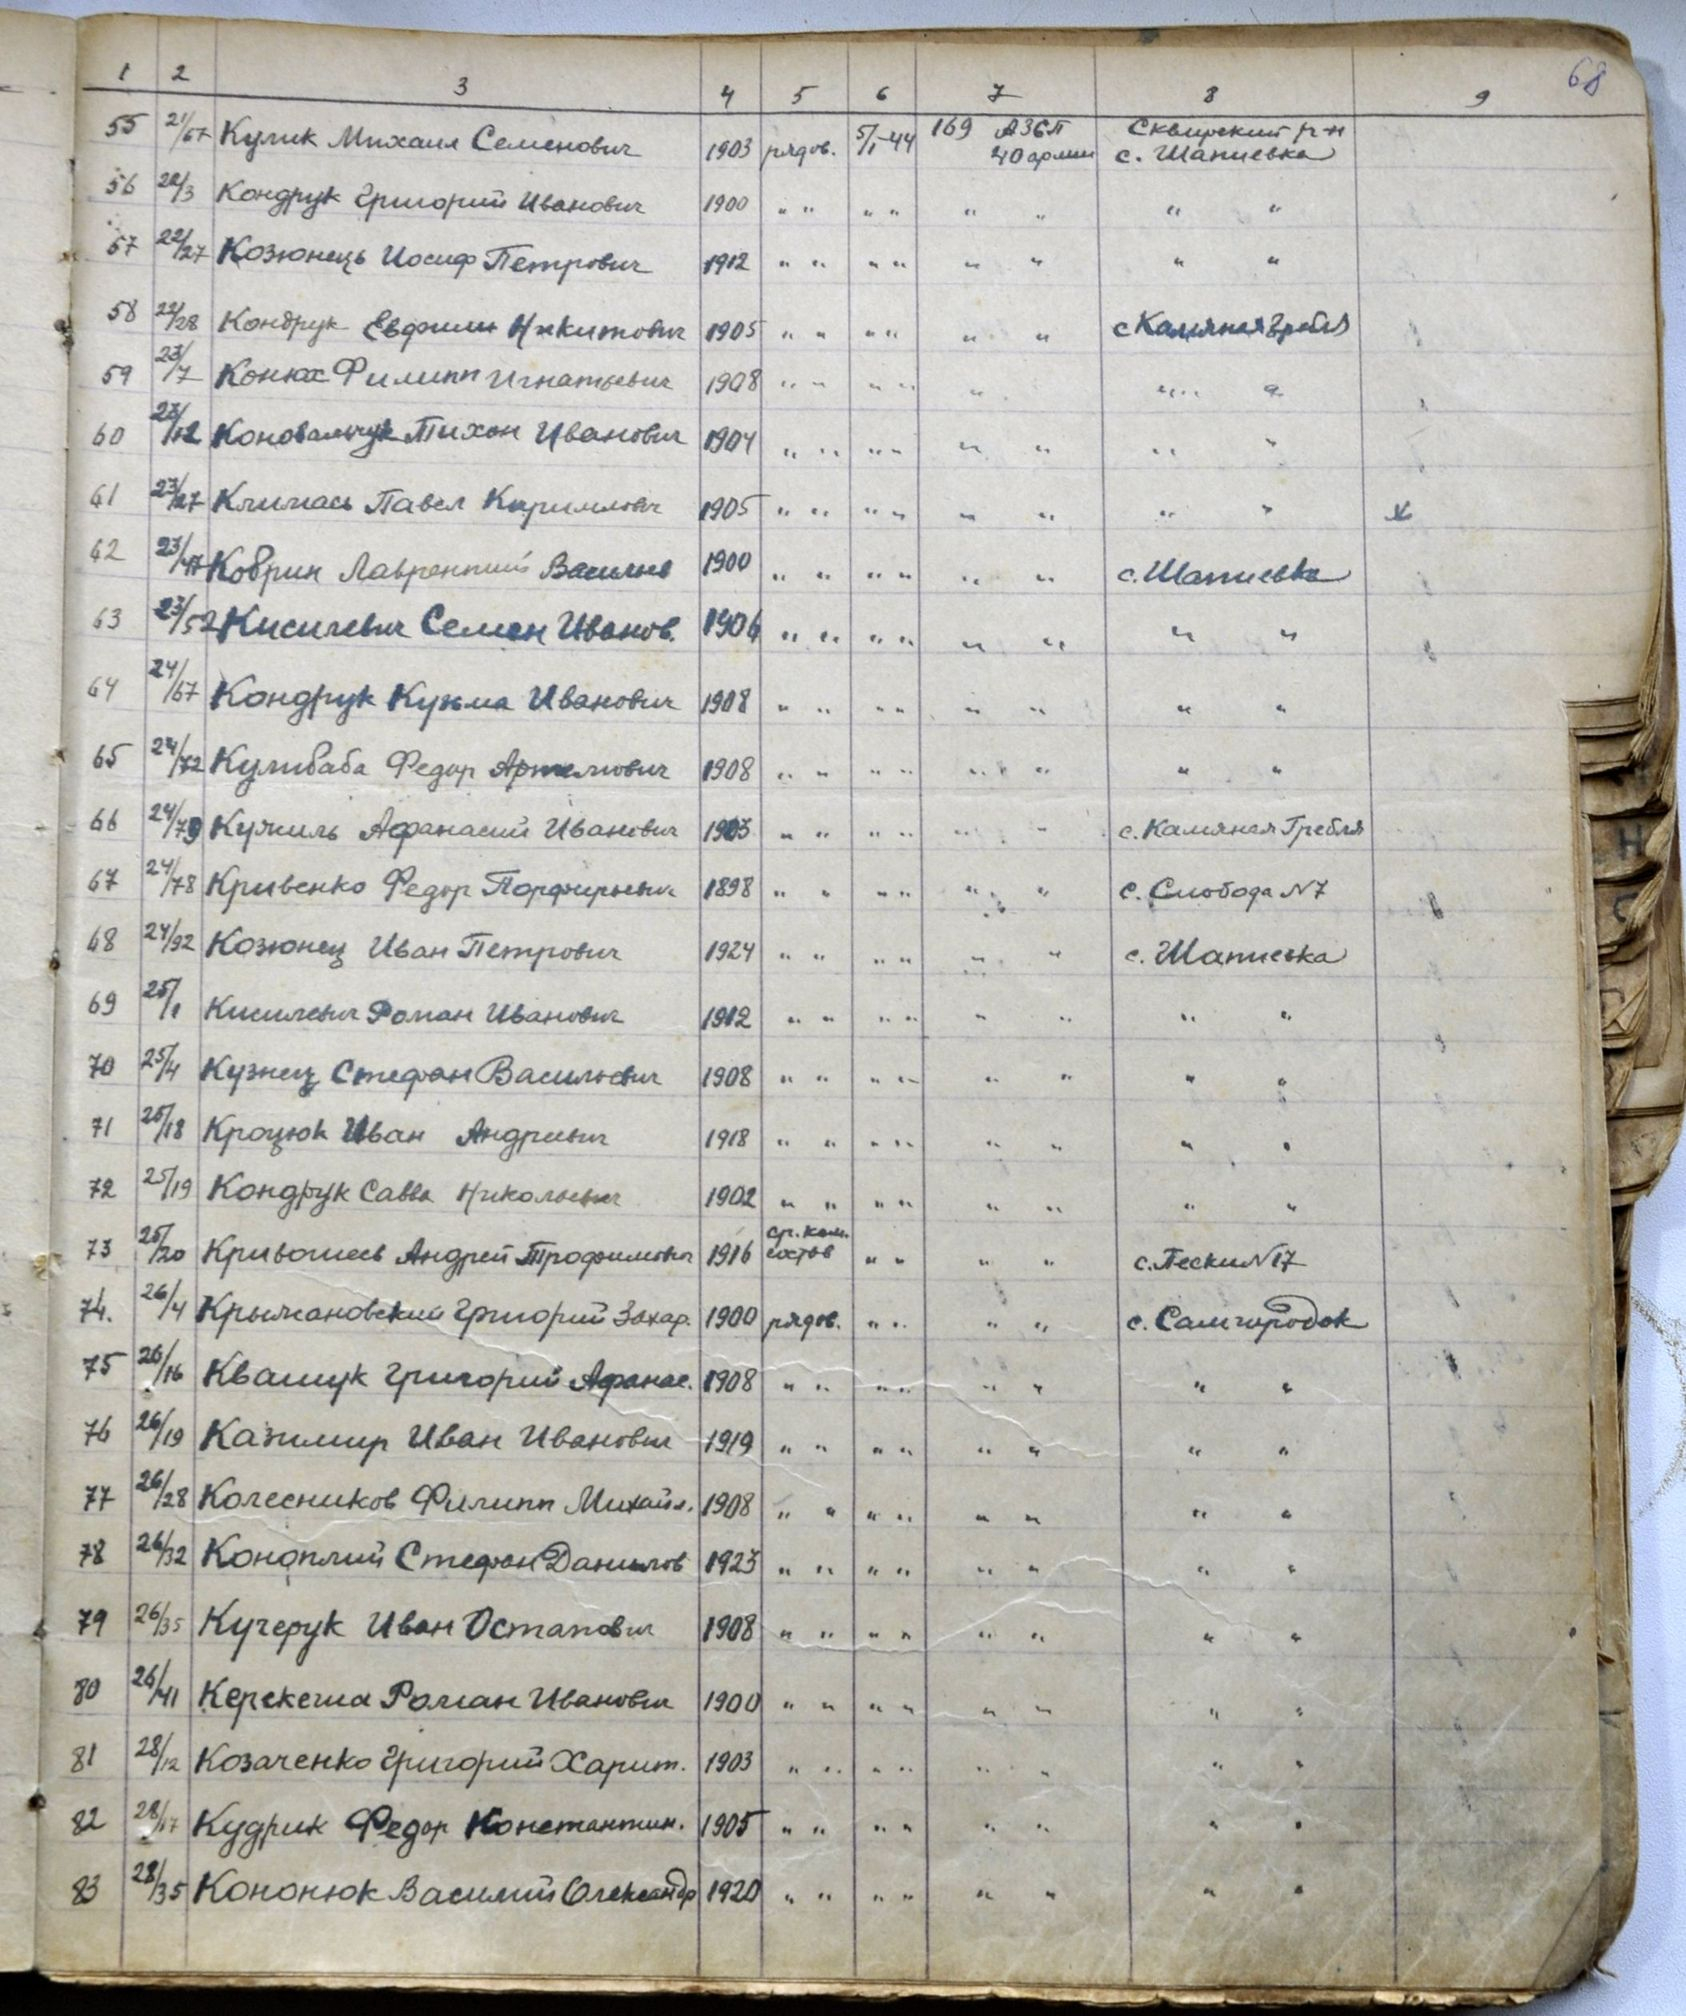 68
1 2 3 4 5 6 7 8 9
55 21/67 Кулик Михаил Семенович 1903 рядов. 5/I-44 169 АЗСП Сквирский р-н
40 армии с. Шапиевка
56 22/3 Кондрук Григорий Иванович 1900 " " " " " " " "
57 22/27 Козюнець Иосиф Петрович 1912 " " " " " " " "
58 22/28 Кондрук Евфим Никитович 1905 " " " " " " с Камяная Гребля
59 23/7 Конюх Филипп Игнатьевич 1908 " " " " " " "
60 23/12 Коновальчук Тихон Иванович 1904 " " " " " " " "
61 23/27 Климась Павел Кириллович 1905 " " " " " " " "
62 23/47 Коврин Лаврентий Васильев 1900 " " " " " " с. Шапиевка
63 23/52 Кисилевич Семен Иванов. 1906 " " " " " " " "
64 24/67 Кондрук Кузьма Иванович 1908 " " " " " " " "
65 24/72 Кулибаба Федор Артемович 1908 " " " " " " " "
66 24/79 Кужиль Афанасий Иванович 1903 " " " " " " с. Камяная Гребля
67 24/78 Кривенко Федор Порфирьевич 1898 " " " " " " с. Слобода N7
68 24/92 Козюнец Иван Петрович 1924 " " " " " " с. Шапиевка
69 25/1 Кисилевич Роман Иванович 1912 " " " " " " " "
70 25/4 Кузнец Стефан Васильевич 1908 " " " " " " " "
71 25/18 Кроцюк Иван Андреевич 1918 " " " " " " " "
72 25/19 Кондрук Савва Николаевич 1902 " " " " " " " "
73 25/20 Андрей Трофимович 1916 ср. ком. состав " " " " с. Пески N17
74. 26/4 Крыжановский Григорий Захар. 1900 рядов. " " " " с. Самгородок
75 26/16 Квашук Григорий Афанас. 1908 " " " " " " " "
76 26/19 Казимир Иван Иванович 1919 " " " " " " " "
77 26/28 Колесников Филипп Михайл. 1908 " " " " " " " "
78 26/32 Коноплий Стефан Данилов 1923 " " " " " " " "
79 26/35 Кучерук Иван Остапович 1908 " " " " " " " "
80 26/41 Керекеша Роман Иванович 1900 " " " " " " " "
81 28/12 Козаченко Григорий Харит. 1903 " " " " " " " "
82 28/17 Кудрик Федор Константин. 1905 " " " " " " " "
83 28/35 Кононюк Василий Олександр 1920 " " " " " " " "